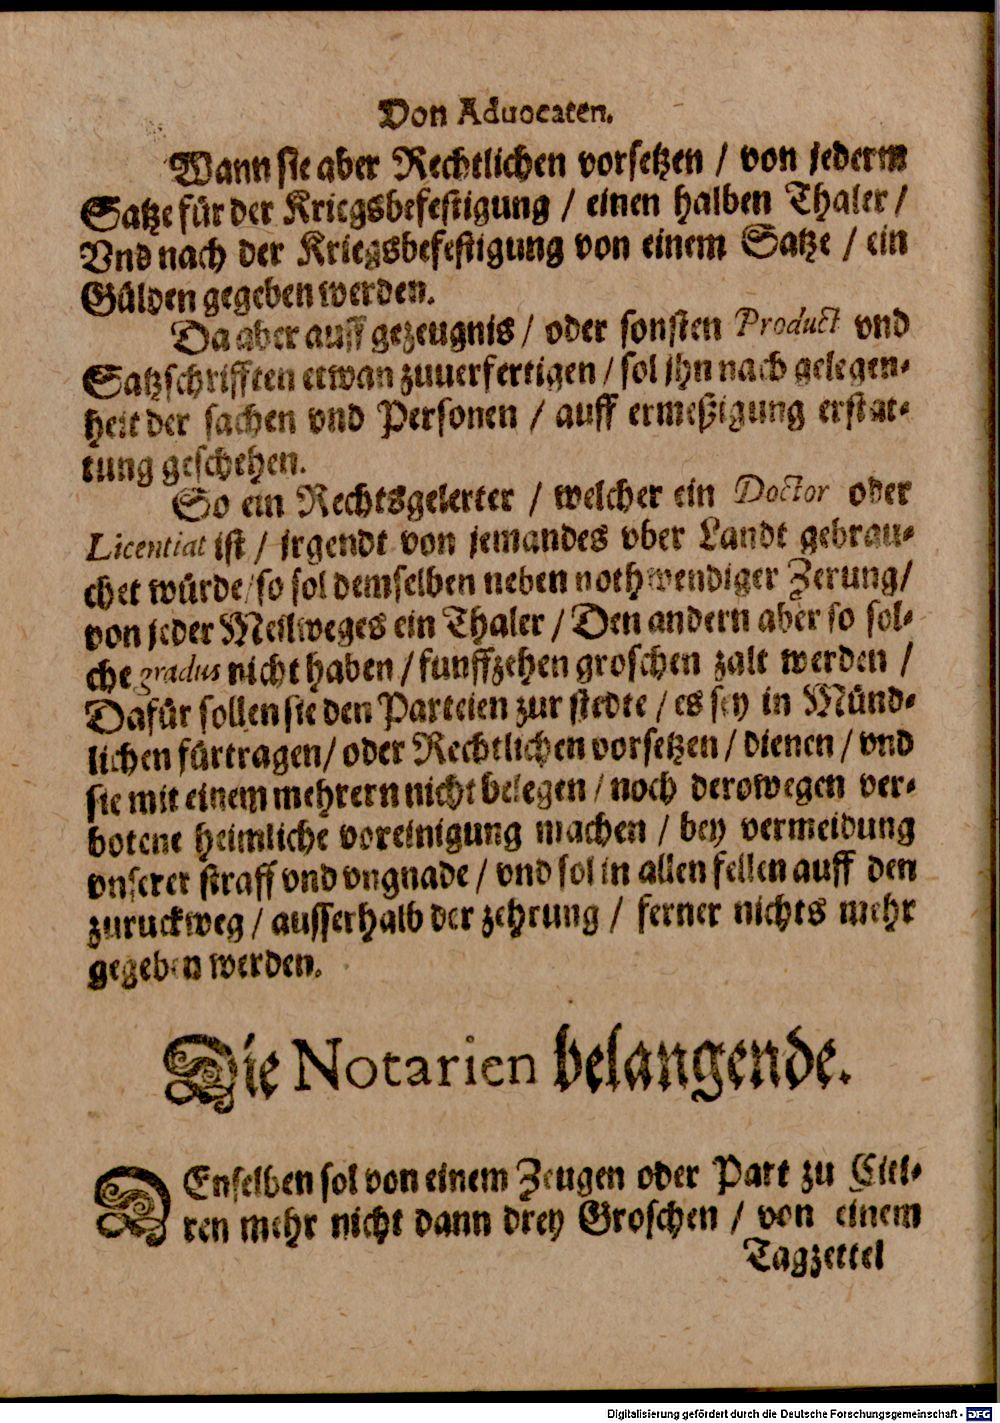 Von Aduocaten.
Wann sie aber Rechtlichen vorsetzen / von jederm
Satze für der Kriegsbefestigung / einen halben Thaler /
Vnd nach der Kriegsbefestigung von einem Satze / ein
Gülden gegeben werden.
Da aber auff gezeugnis / oder sonsten Product vnd
Satzschrifften etwan zuuerfertigen / sol jhn nach gelegen-
heit der sachen vnd Personen / auff ermeßigung erstat-
tung geschehen.
So ein Rechtsgelerter / welcher ein Doctor oder
Licentiat ist / jrgendt von jemandes vber Landt gebrau-
chet würde / so sol demselben neben nothwendiger Zerung /
von jeder Meilweges ein Thaler / Den andern aber so sol-
che gradus nicht haben / funffzehen groschen zalt werden /
Dafür sollen sie den Parteien zur stedte / es sey in Münd-
lichen fürtragen / oder Rechtlichen vorsetzen / dienen / vnd
sie mit einem mehrern nicht belegen / noch derowegen ver-
botene heimliche voreinigung machen / bey vermeidung
vnserer straff vnd vngnade / vnd sol in allen fellen auff den
zuruckweg / ausserhalb der zehrung / ferner nichts mehr
gegeben werden.
Die Notarien belangende.
DEnselben sol von einem Zeugen oder Part zu Citi-
ren mehr nicht dann drey Groschen / von einem
Tagzettel
Digitalisierung gefördert durch die Deutsche Forschungsgemeinschaft - DFG